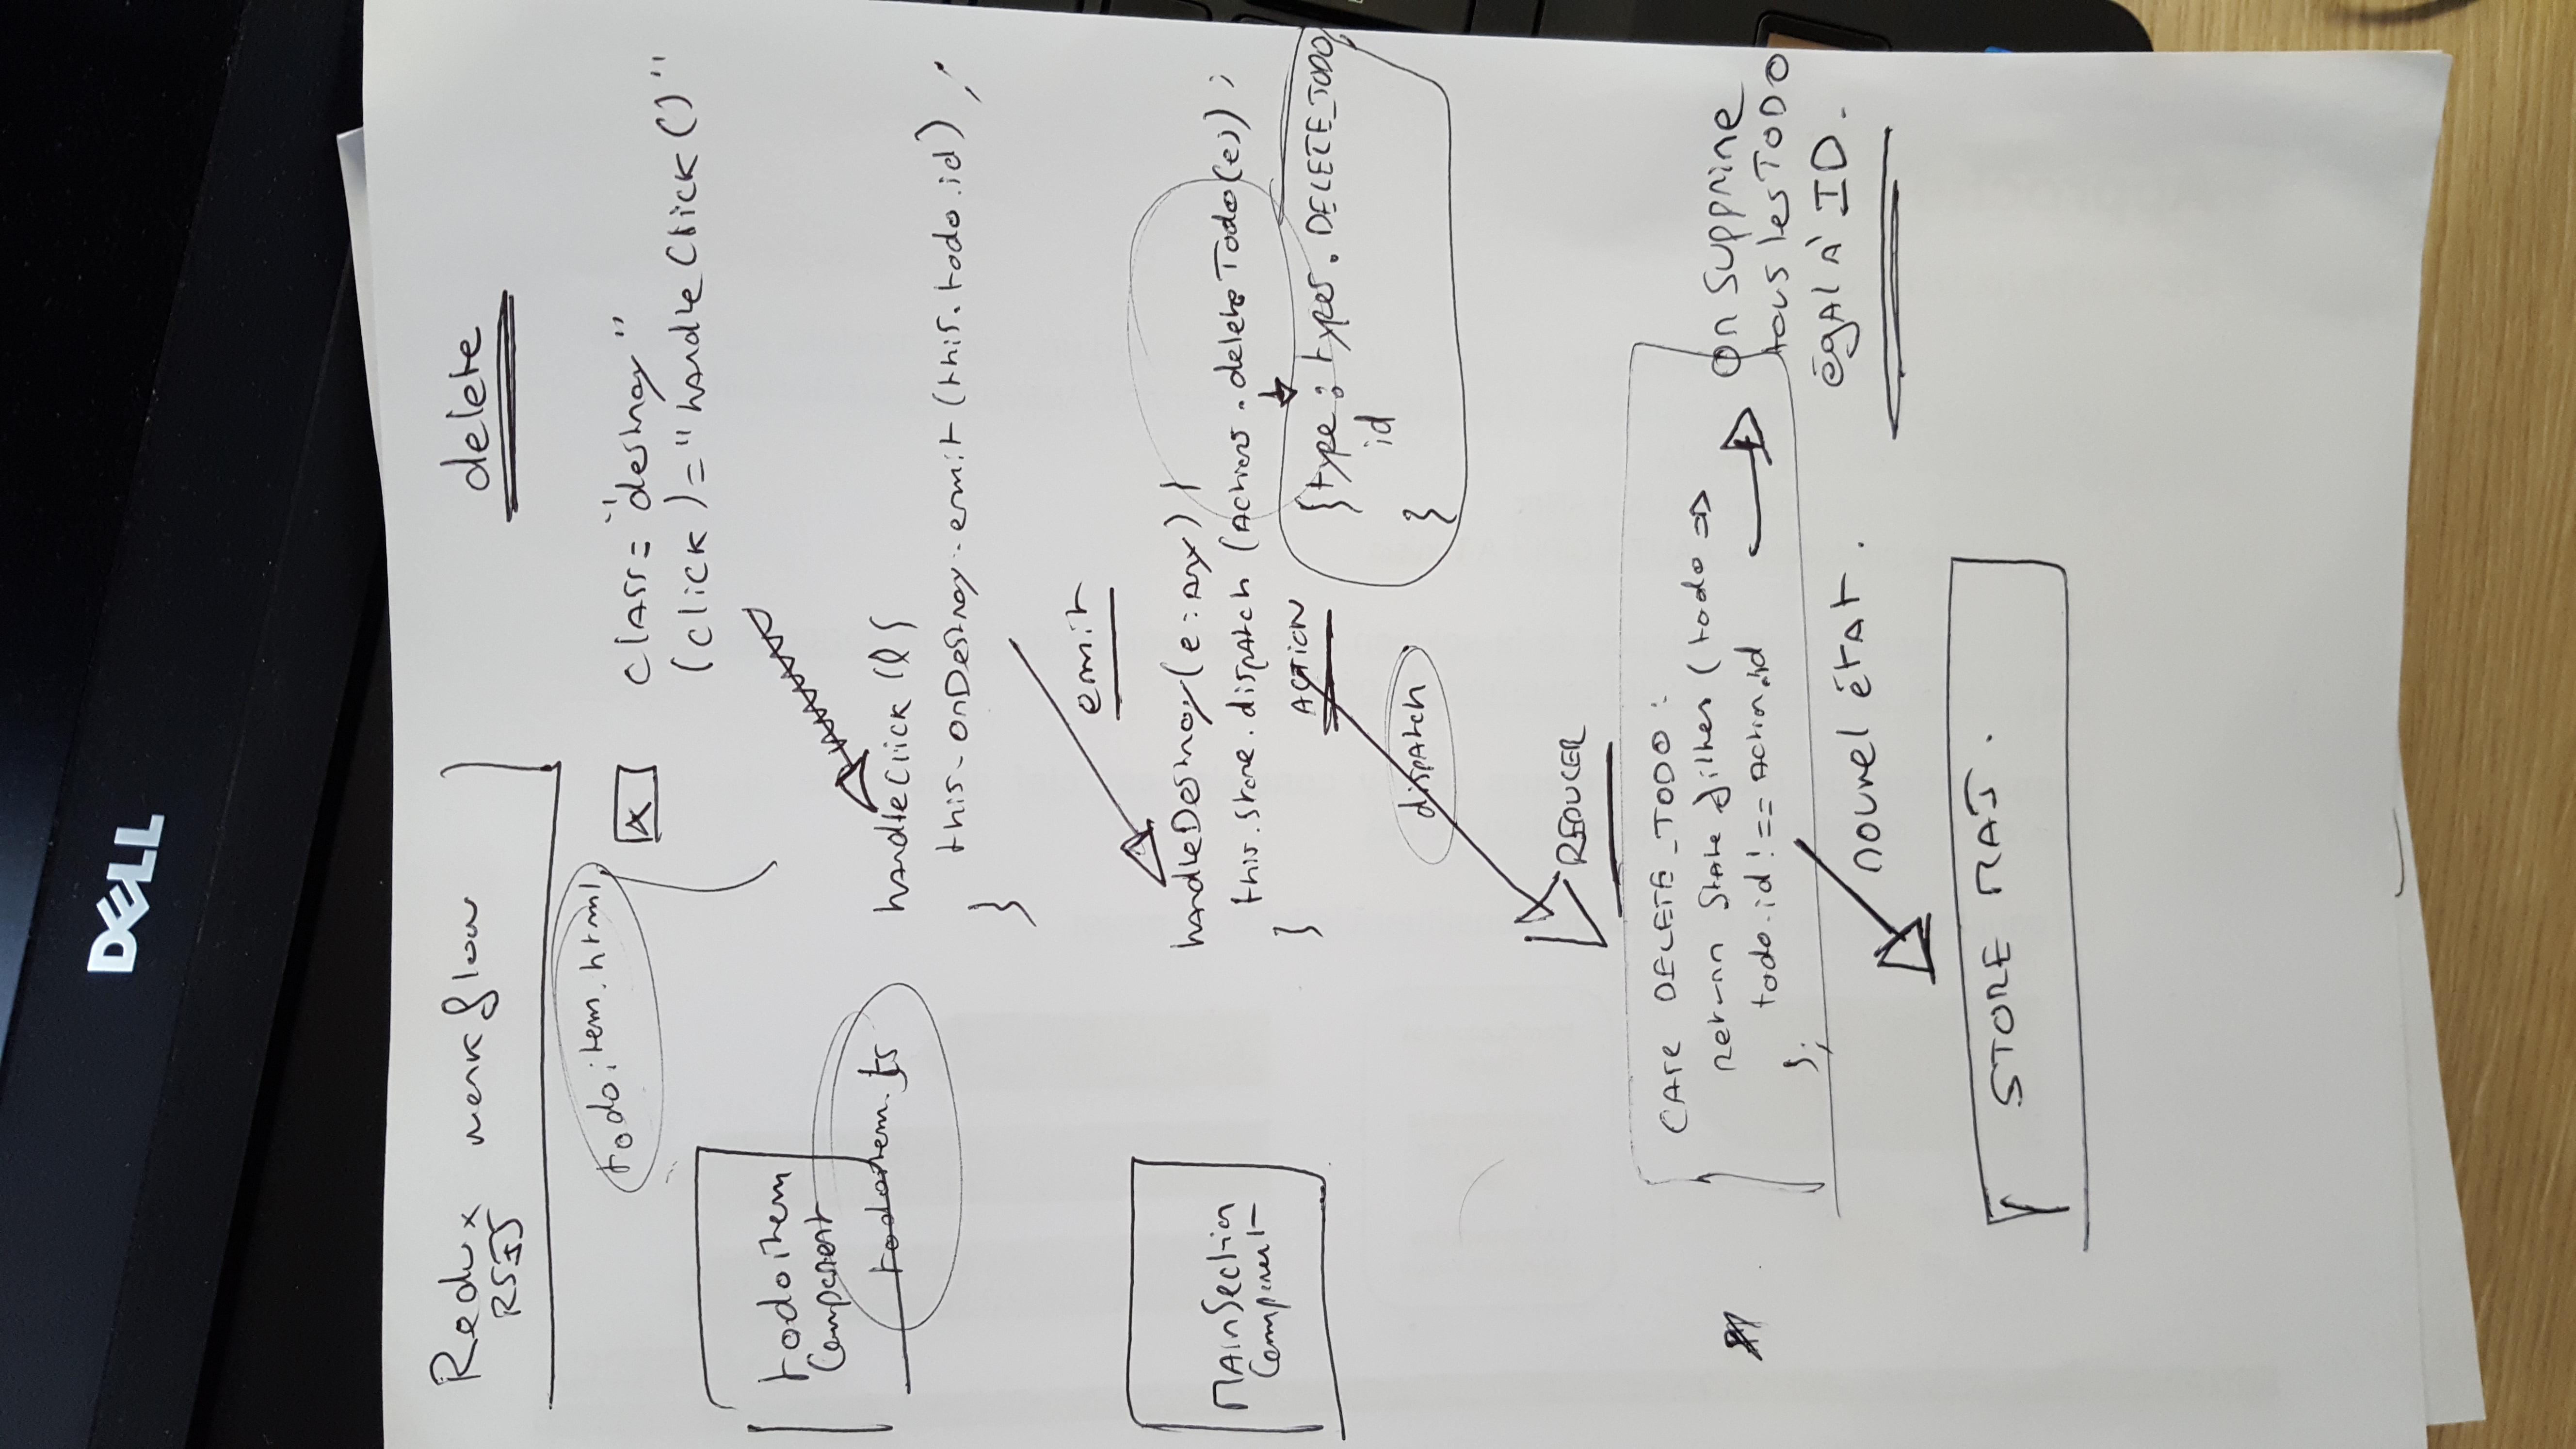 DELL
Redux workflow
RSJS
delete
todoitem.html
X
class="destroy"
(click)="handleClick()"
todoitem
Component
todoitem.ts
handleClick(){
this.onDestroy.emit(this.todo.id);
}
emit
MainSection
Component
handleDestroy(e:any){
this.store.dispatch(Actions.deleteTodo(e));
}
ACTION
{type: types.DELETE_TODO,
id
}
dispatch
REDUCER
case DELETE_TODO:
return state.filter(todo =>
todo.id !== action.id
);
on supprime
tous les TODO
égal à ID.
nouvel état.
STORE MAJ.